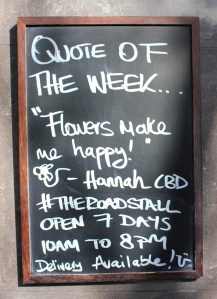 QUOTE OF
THE WEEK...
"Flowers MAKE
me happy!"
- HANNAH CBD
#THEROADSTALL
OPEN 7 DAYS
10AM TO 8PM
Delivery Available!